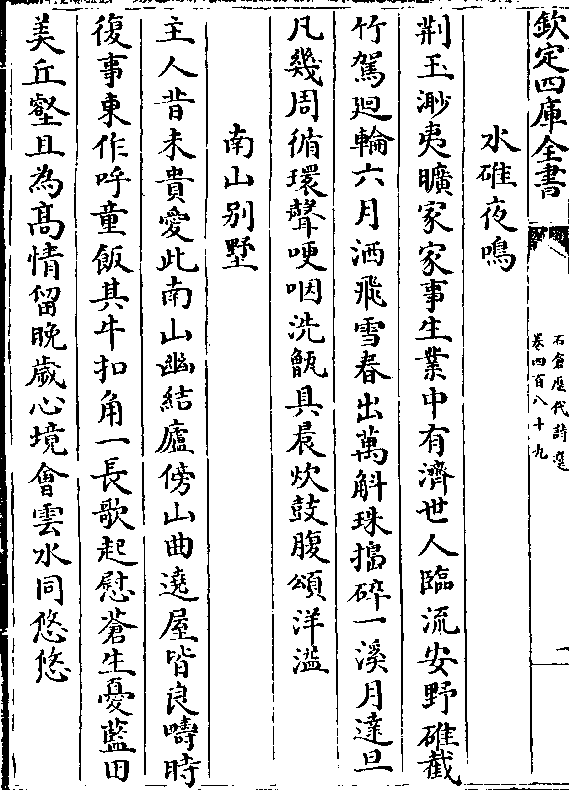 欽定四庫全書
石倉歷代詩選
卷四百八十九
一
水碓夜鳴
荆玉渺夷曠家家事生業中有濟世人臨流安野碓截
竹駕迴輪六月洒飛雪舂出萬斛珠搗碎一溪月達旦
凡幾周循環聲哽咽洗甑具晨炊鼓腹頌洋溢
南山别墅
主人昔未貴愛此南山幽結廬傍山曲遶屋皆良疇時
復事東作呼童飯其牛扣角一長歌起慰蒼生憂藍田
美丘壑且為髙情留晚嵗心境㑹雲水同悠悠